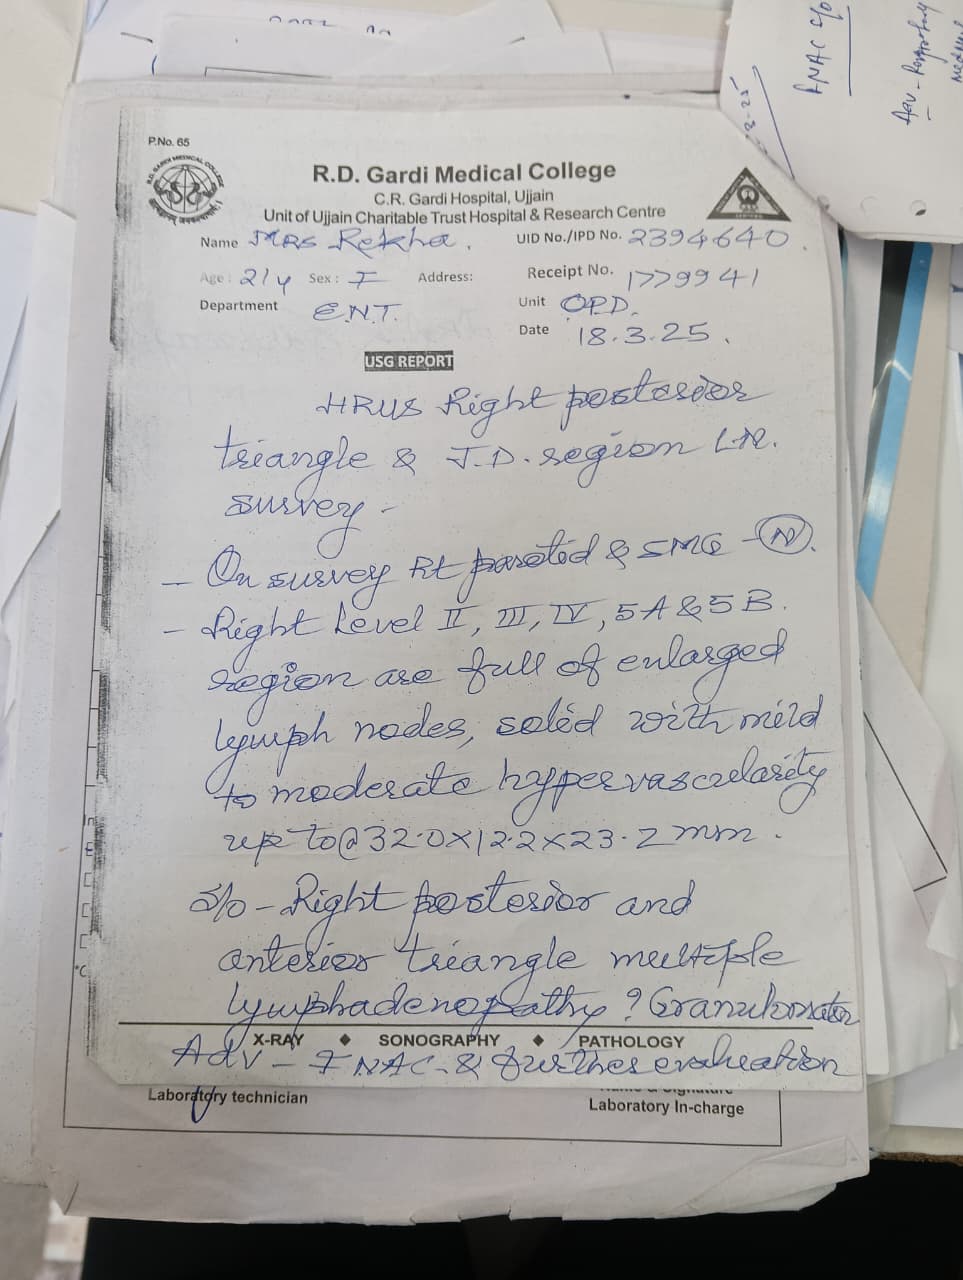 P.No. 65
R.D. GARDI MEDICAL COLLEGE
R.D. Gardi Medical College
C.R. Gardi Hospital, Ujjain
Unit of Ujjain Charitable Trust Hospital & Research Centre
Name Mrs Rekha. UID No./IPD No. 2394640.
Age: 21y Sex: F Address: Receipt No. 1779941
Department E.N.T. Unit OPD.
Date 18.3.25.
USG REPORT
HRUS Right posterior
triangle & J.D. region LN.
survey -
- On survey Rt parotid & SMG - N.
- Right Level II, III, IV, 5A & 5B.
region are full of enlarged
lymph nodes, solid with mild
to moderate hypervascularity
up to @ 32.0x12.2x23.2 mm.
S/o - Right posterior and
anterior triangle multiple
lymphadenopathy ? Granulomatous
X-RAY ♦ SONOGRAPHY ♦ PATHOLOGY
Adv - FNAC & further evaluation
Laboratory technician
Laboratory In-charge
FNAC
Adv - Respiratory